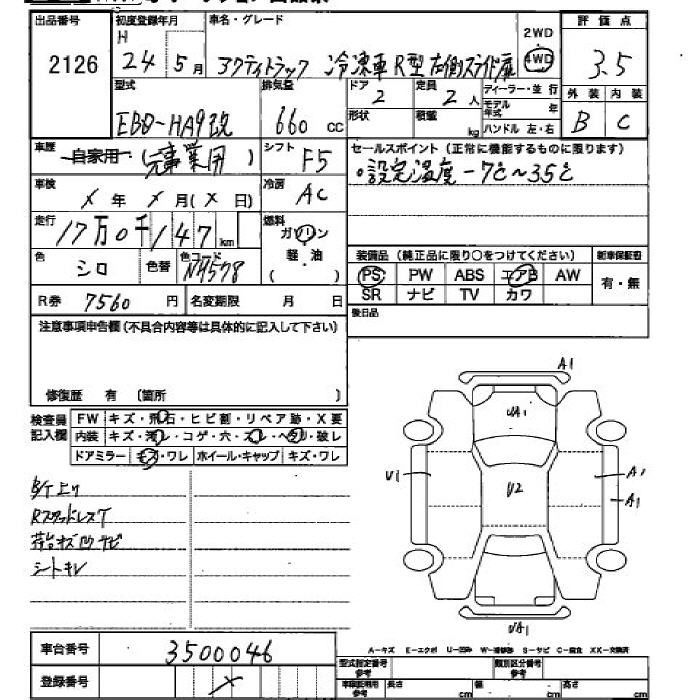 出品番号 初度登録年月 車名・グレード 2WD 評価点
2126 H 24年5月 アクティトラック 冷凍車R型 左側スライド扉 4WD 3.5
型式 排気量 ドア 2 定員 2人 ディーラー・並行 外装 内装
EBD-HA9改 660cc 形状 積載 kg モデル年式 年 B C
ハンドル 左・右
車歴 自家用・(元事業用) シフト F5 セールスポイント(正常に機能するものに限ります)
車検 X年X月(X日) 冷房 AC 。設定温度-7℃~35℃
走行 17万0千147km 燃料 ガソリン 軽・油 ( )
色 シロ 色替 色コード NH578 装備品(純正品に限り〇をつけてください) 新車保証書
PS PW ABS エアB AW 有・無
SR ナビ TV カワ
R券 7560円 名変期限 月 日 後日品
注意事項申告欄(不具合内容等は具体的に記入して下さい)
修復歴 有 (箇所 )
検査員記入欄 FW キズ・飛石・ヒビ割・リペア跡・X要
内装 キズ・汚レ・コゲ・穴・スレ・ヘタリ・破レ
ドアミラー キズ・ワレ ホイール・キャップ キズ・ワレ
A1
UA1
U1 U2 A1
A1
UA1
B/T上リ
RスタッドレスT
荷台キズ凹サビ
シートキレ
車台番号 3500046
登録番号 X
A-キズ E-エクボ U-凹み W-補修跡 S-サビ C-腐食 XX-交換済
型式指定番号 参考 類別区分番号 参考
長さ cm 幅 cm 高さ cm